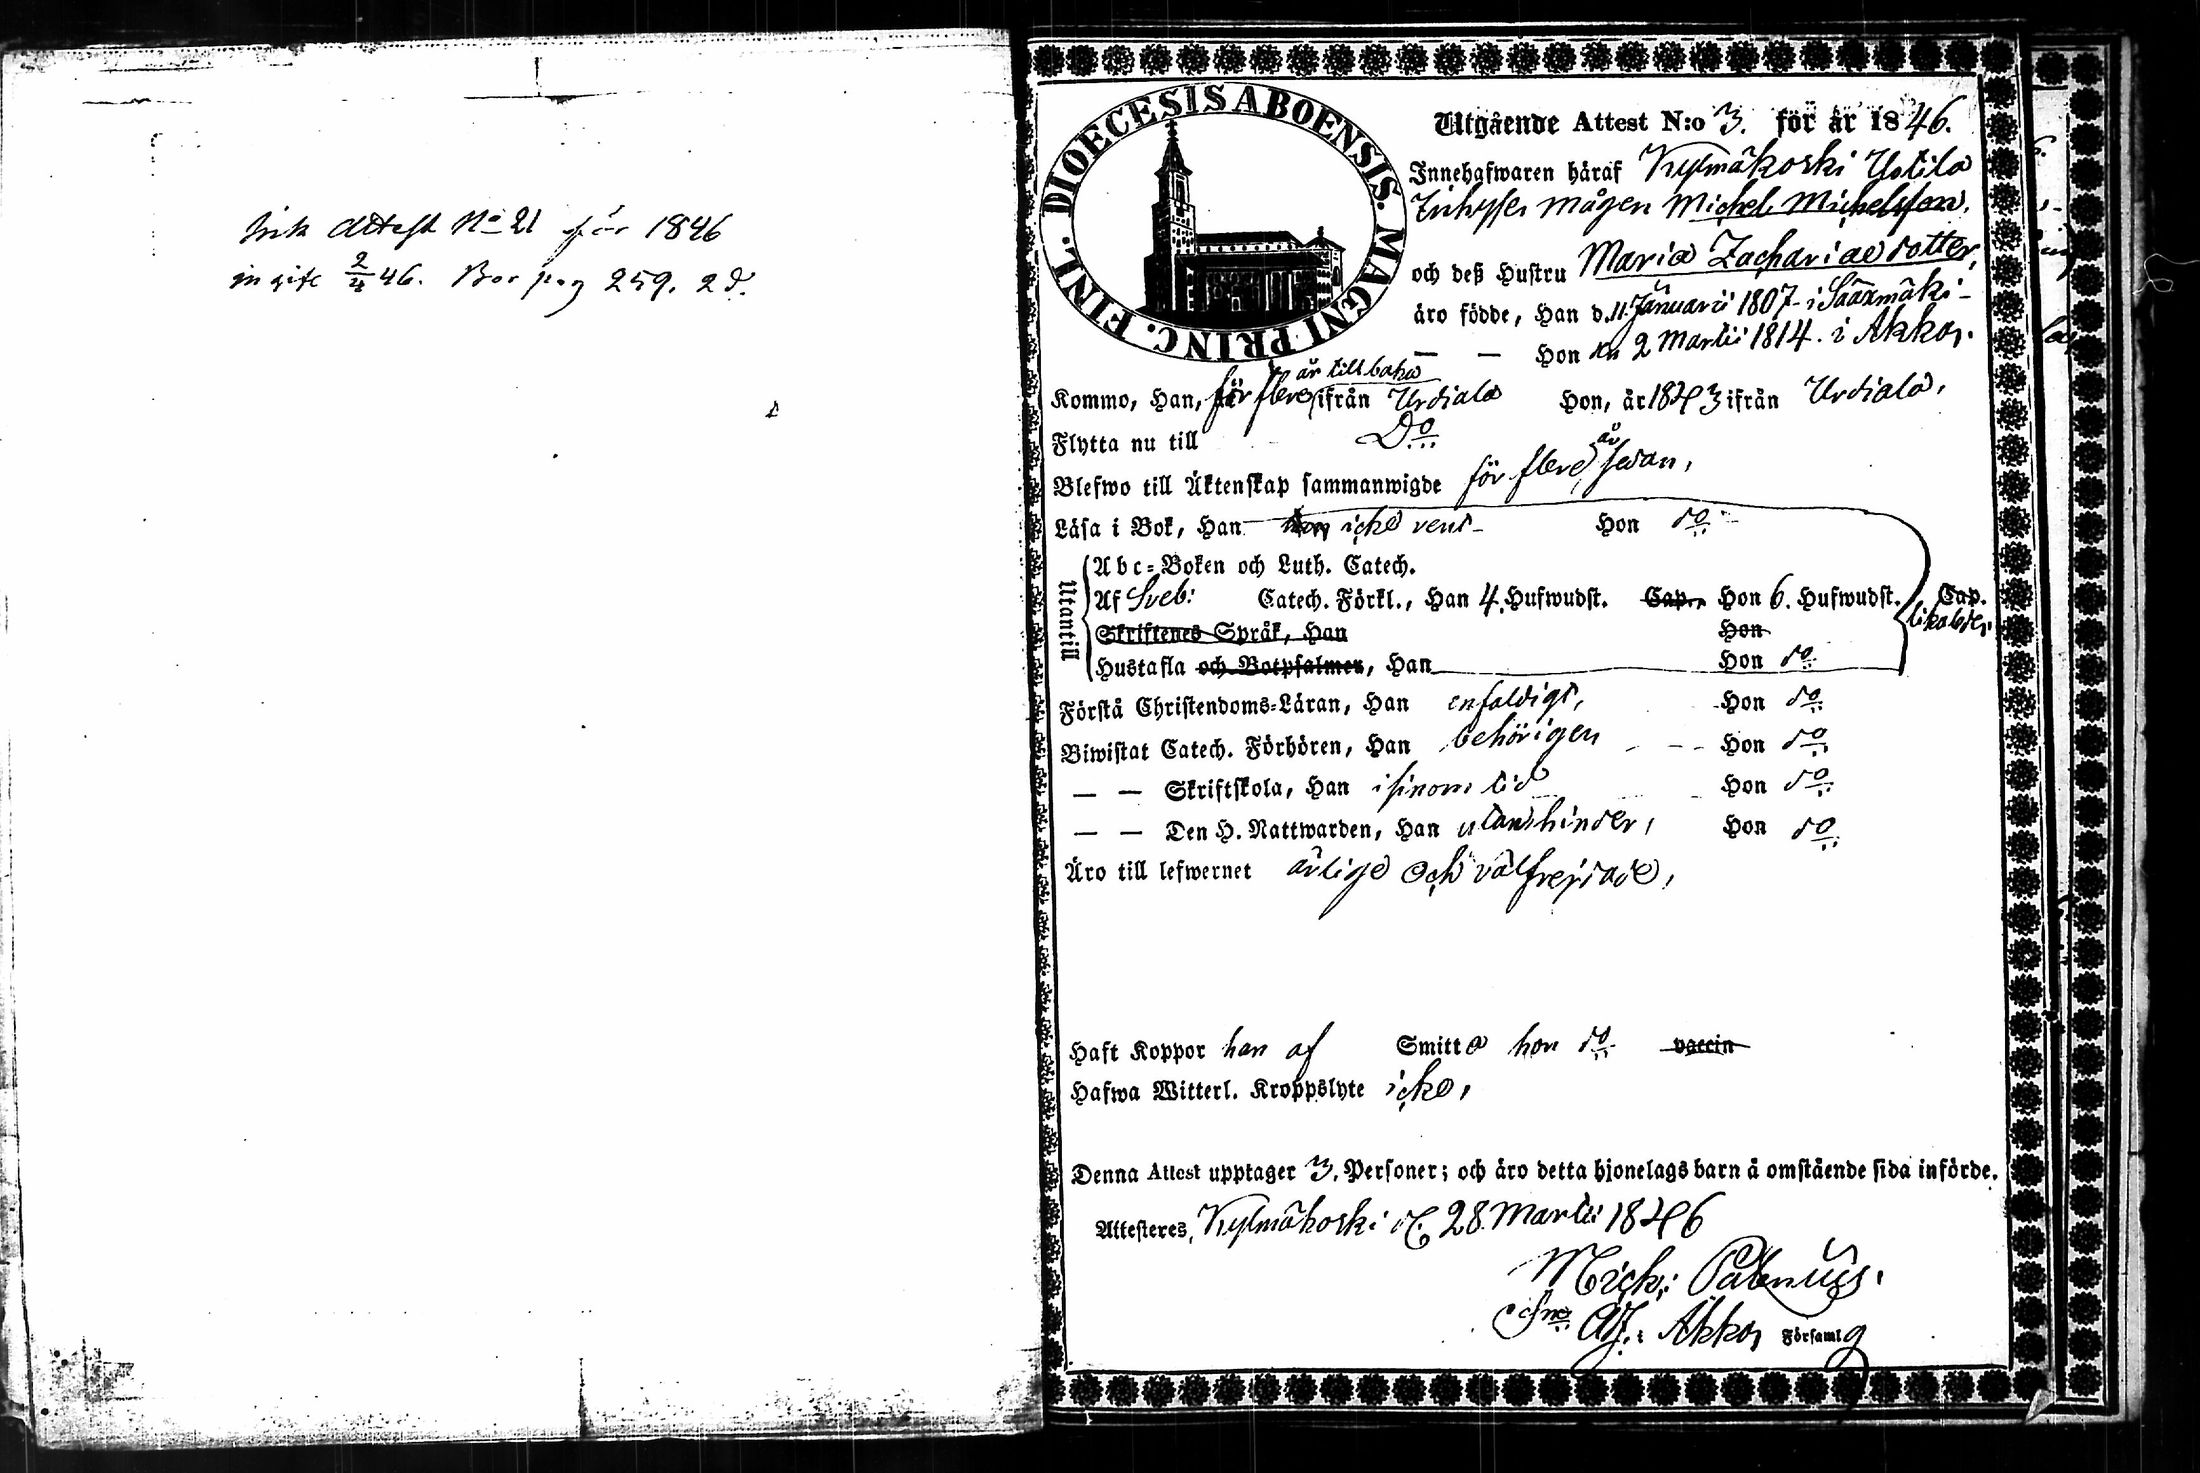 Attest No 21 för 1846
2/4 46. Bor pag 259. 2 d.
DIOECESIS ABOENSIS. MAGNI PRINC. FINL.
Utgående Attest N:o 3. för år 1846.
Innehafwaren häraf Kylmäkoski Yotila
mågen Michel Michelsson,
och deß Hustru Maria Zachariae dotter,
äro födde, Han d. 11 Januarii 1807 i Sääxmäki
— — Hon den 2 Martii 1814. i Akkas.
år tillbaka
Kommo, Han, för flere ifrån Urdiala Hon, år 1843 ifrån Urdiala,
Flytta nu till Do
år
Blefwo till Äktenskap sammanwigde för flere sedan,
Läsa i Bok, Han icke rent Hon do
Utantill
Abc-Boken och Luth. Catech.
Af Sveb: Catech. Förkl., Han 4. Hufwudst. Cap., Hon 6. Hufwudst. Cap.
Skriftenes Språk, Han Hon
Hustafla och Botpsalmer, Han Hon do
Förstå Christendoms-Läran, Han enfaldigt, Hon do
Biwistat Catech. Förhören, Han behörigen Hon do
— — Skriftskola, Han i sinom tid Hon do
— — Den H. Nattwarden, Han utan hinder, Hon do
Äro till lefwernet ärlige och välfrejdade,
Haft Koppor han af Smitta hon do vaccin
Hafwa Witterl. Kroppslyte icke,
Denna Attest upptager 3. Personer; och äro detta hjonelags barn å omstående sida införde.
Attesteres, Kylmäkoski d. 28 Martii 1846
Mich:
Akkas Församlg